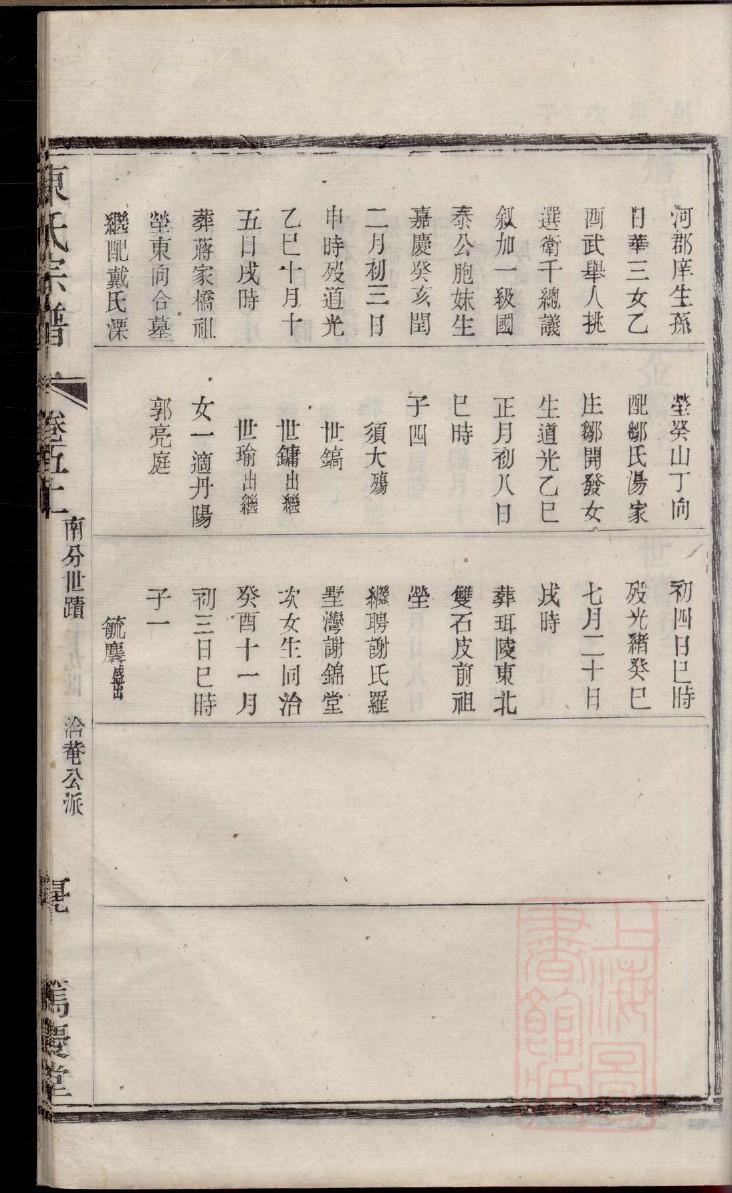 河郡庠生孫
日華三女乙
酉武舉人挑
選衛千總議
叙加一級國
泰公胞妹生
嘉慶癸亥閏
二月初三日
申時歿道光
乙巳十月十
五日戌時
葬蔣家橋祖
塋東向合墓
繼配戴氏溧
塋癸山丁向
配鄒氏湯家
庄鄒開發女
生道光乙巳
正月初八日
巳時
子四
須大殤
世鎬
世鏞出繼
世瑜出繼
女一適丹陽
郭亮庭
初四日巳時
歿光緒癸巳
七月二十日
戌時
葬珥陵東北
雙石皮前祖
塋
繼聘謝氏羅
墅灣謝錦堂
次女生同治
癸酉十一月
初三日巳時
子一
毓麐盛出
氏宗譜
卷五上
南分世蹟
洽菴公派
篤慶堂
上海圖書館藏